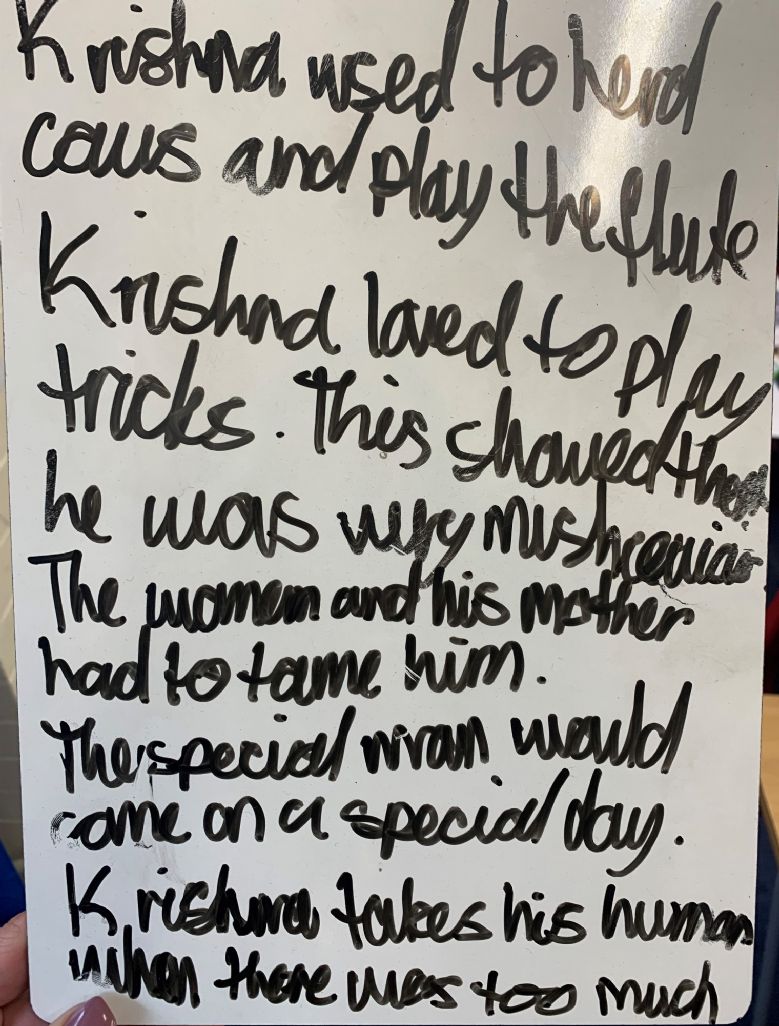 Krishna used to herd
cows and play the flute
Krishna loved to play
tricks. This showed that
he was very
The women and his mother
had to tame him.
The special would
come on a special day.
Krishna takes his human
when there was too much